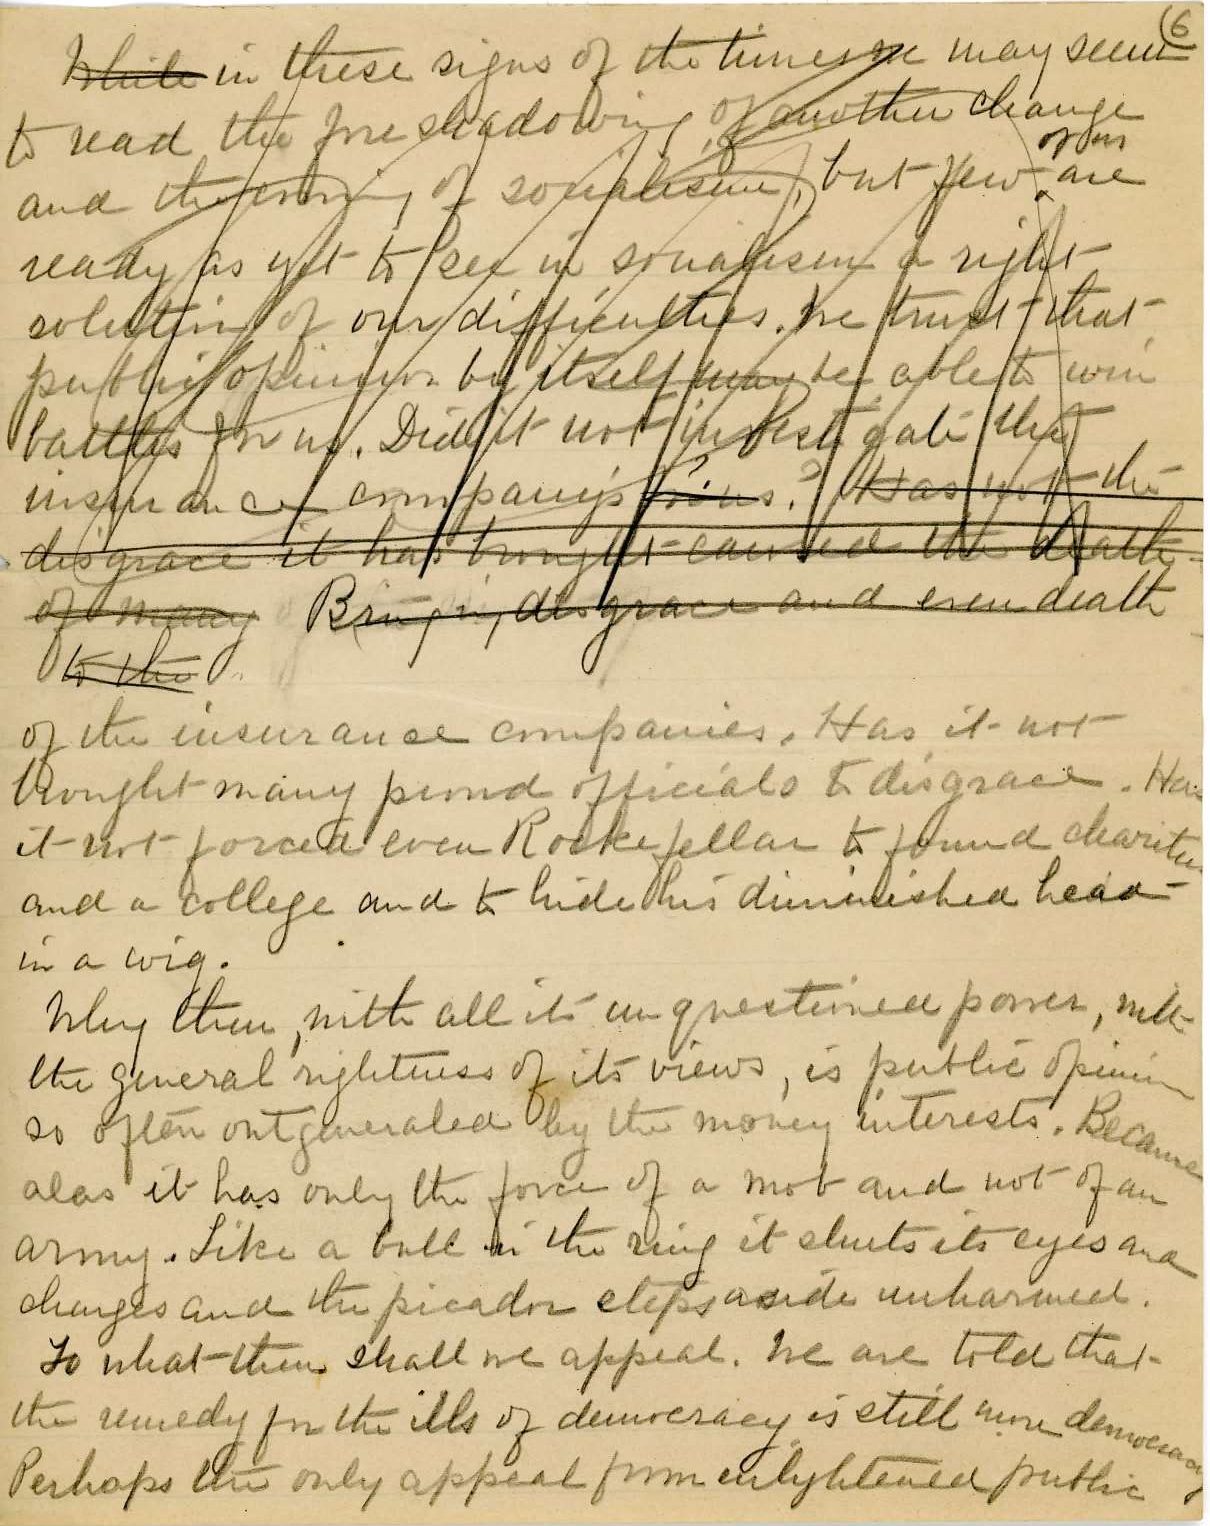 (6
While in these signs of the times we may seem
to read the foreshadowing of another change
and the coming of socialism, but few of us are
ready as yet to see in socialism a right
solution of our difficulties. We trust that
public opinion by itself may be able to win
battles for us. Did it not investigate the
insurance companys ? Has not the
disgrace it has brought caused the death
of many Bringing disgrace and even death
to the
of the insurance companies. Has it not
brought many proud officials to disgrace. Has
it not forced even Rockefellar to found charities
and a college and to hide his diminished head
in a wig.
Why then, with all its unquestioned power, with
the general rightness of its views, is public opinion
so often outgeneraled by the money interests. Because
alas it has only the force of a mob and not of an
army. Like a bull in the ring it shuts its eyes and
charges and the picador steps aside unharmed.
To what then shall we appeal. We are told that
the remedy for the ills of democracy is still more democracy
Perhaps the only appeal from enlightened public